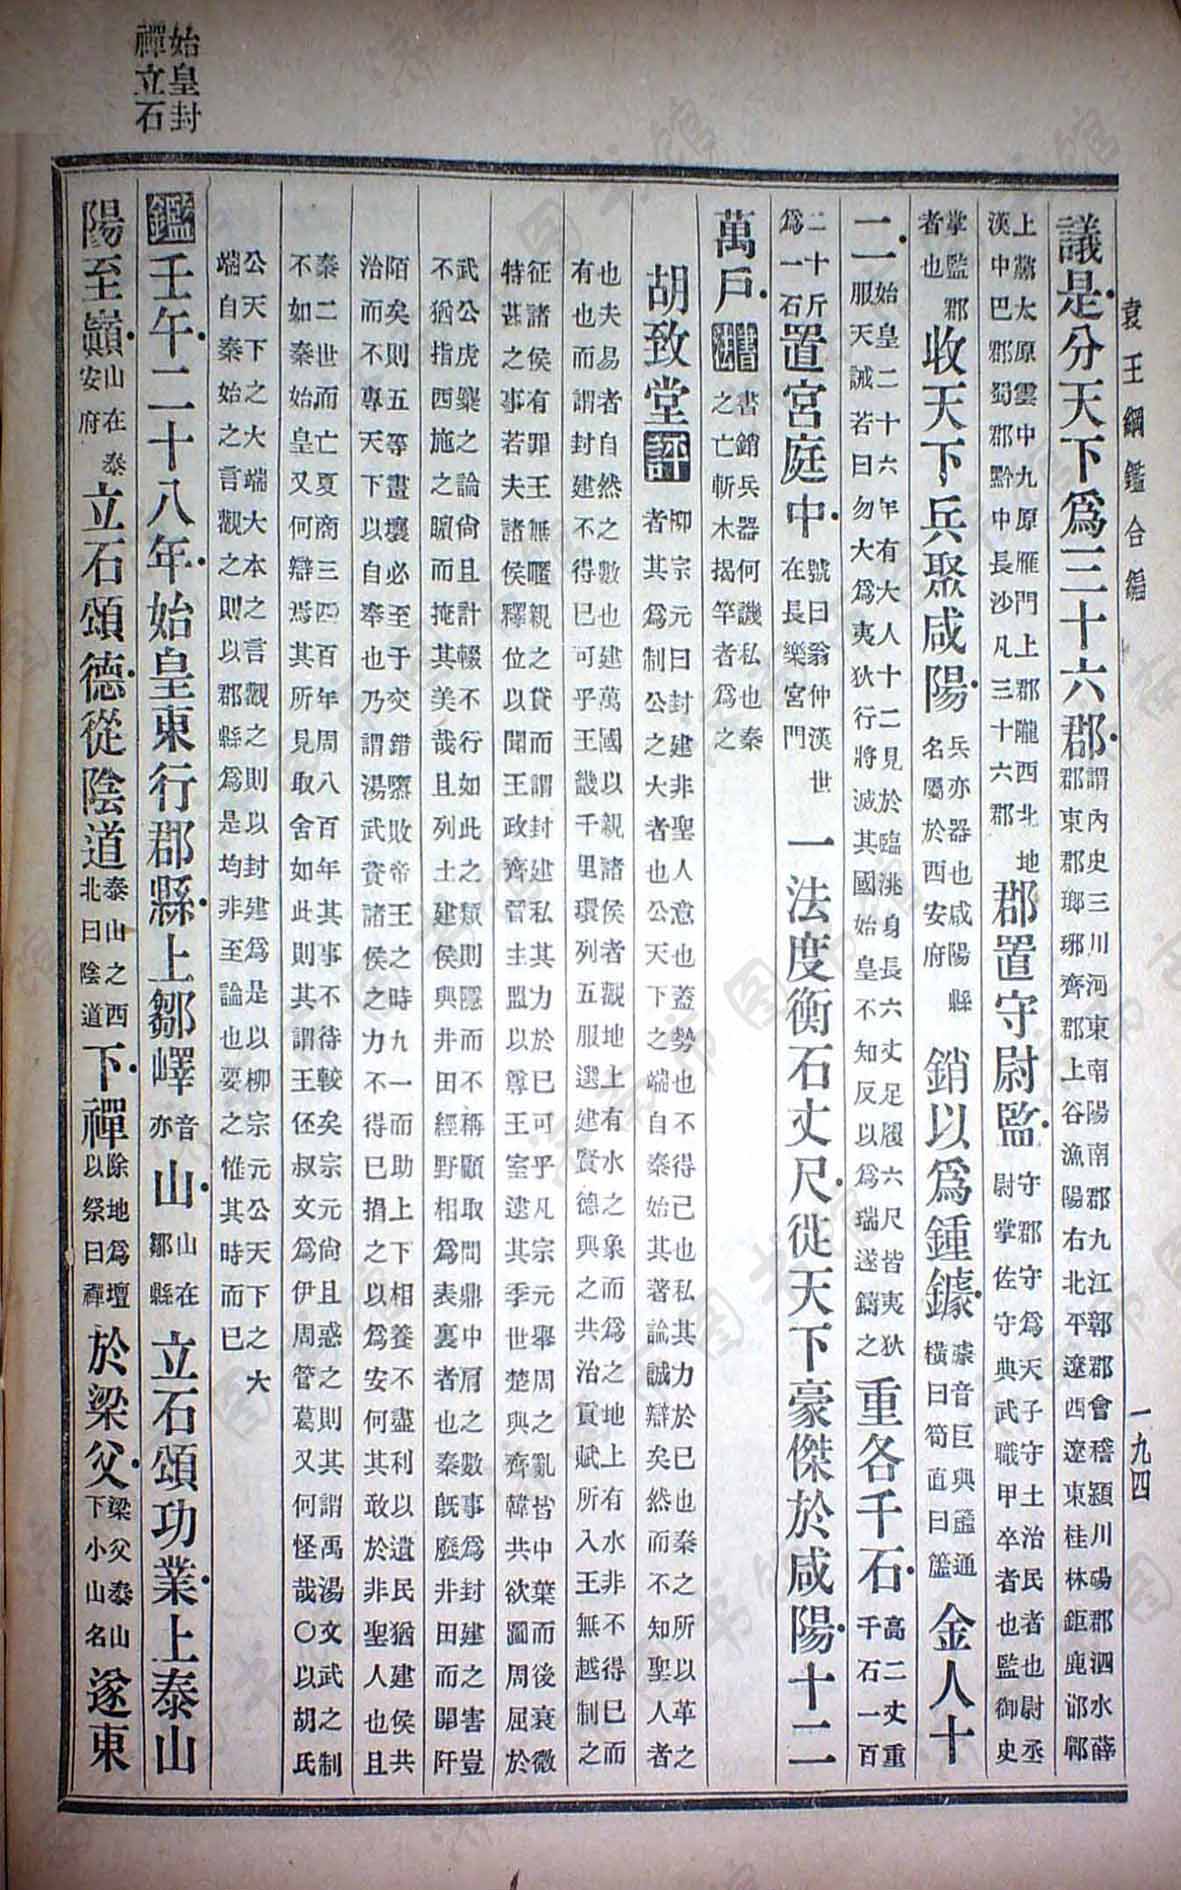 袁王綱鑑合編 一九四
議是分天下爲三十六郡
謂內史三川河東南陽南郡九江鄣郡會稽潁川碭郡泗水薛
郡東郡瑯琊齊郡上谷漁陽右北平遼西遼東桂林鉅鹿邯鄲
上黨太原雲中九原雁門上郡隴西北地
漢中巴郡蜀郡黔中長沙凡三十六郡
郡置守尉監
守郡守爲天子守土治民者也尉丞
尉掌佐守典武職甲卒者也監御史
掌監郡
者也
收天下兵聚咸陽
兵亦器也咸陽縣
名屬於西安府
銷以爲鍾鐻
鐻音巨與簴通
橫曰筍直曰簴
金人十
二
始皇二十六年有大人十二見於臨洮身長六丈足履六尺皆夷狄
服天誡若曰勿大爲夷狄行將滅其國始皇不知反以爲瑞遂鑄之
重各千石
高二丈重
千石一百
二十斤
爲一石
置宮庭中
號曰翁仲漢世
在長樂宮門
一法度衡石丈尺徙天下豪傑於咸陽十二
萬戶
書法
書銷兵器何譏私也秦
之亡斬木揭竿者爲之
胡致堂評
柳宗元曰封建非聖人意也蓋勢也不得已也私其力於己也秦之所以革之
者其爲制公之大者也公天下之端自秦始其著論誠辯矣然而不知聖人者
也夫易者自然之數也建萬國以親諸侯者觀地上有水之象而爲之地上有水非不得已而
有也而謂封建不得已可乎王畿千里環列五服選建賢德與之共治貢賦所入王無越制之
征諸侯有罪王無暱親之貸而謂封建私其力於己可乎凡宗元舉周之亂皆中葉而後衰微
特甚之事若夫諸侯釋位以聞王政齊晉主盟以尊王室逮其季世楚與齊韓共欲圖周屈於
武公虎麋之論尙且計輟不行如此之類則隱而不稱顧取問鼎中肩之數事爲封建之害豈
不猶指西施之矉而掩其美哉且列土建侯與井田經野相爲表裏者也秦旣廢井田而開阡
陌矣則五等畫壤必至于交錯隳敗帝王之時九一而助上下相養不盡利以遺民猶建侯共
治而不專天下以自奉也乃謂湯武資諸侯之力不得已捐之以爲安何其敢於非聖人也且
秦二世而亡夏商三四百年周八百年其事不待較矣宗元尙且惑之則其謂禹湯文武之制
不如秦始皇又何辯焉其所見取舍如此則其謂王伾叔文爲伊周管葛又何怪哉○以胡氏
公天下之大端大本之言觀之則以封建爲是以柳宗元公天下之大
端自秦始之言觀之則以郡縣爲是均非至論也要之惟其時而已
始皇封
禪立石
鑑壬午二十八年始皇東行郡縣上鄒嶧
音
亦
山
山在
鄒縣
立石頌功業上泰山
陽至巔
山在泰
安府
立石頌德從陰道
泰山之西
北曰陰道
下禪
除地爲壇
以祭曰禪
於梁父
梁父泰山
下小山名
遂東